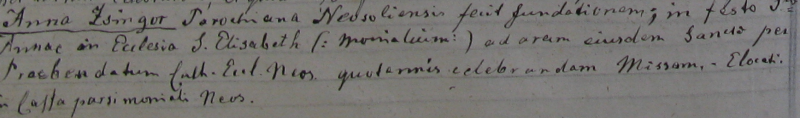 Anna Zsingor Parochiana Neosoliensis fecit fundationem; in festo S.
Annae in Ecclesia S. Elisabeth (: monialium :) ad aram eiusdem Sanctae per
Praebendatum Cath. Eccl. Neos. quotannis celebrandam Missam. - Elocati.
in Cassa parsimoniali Neos.